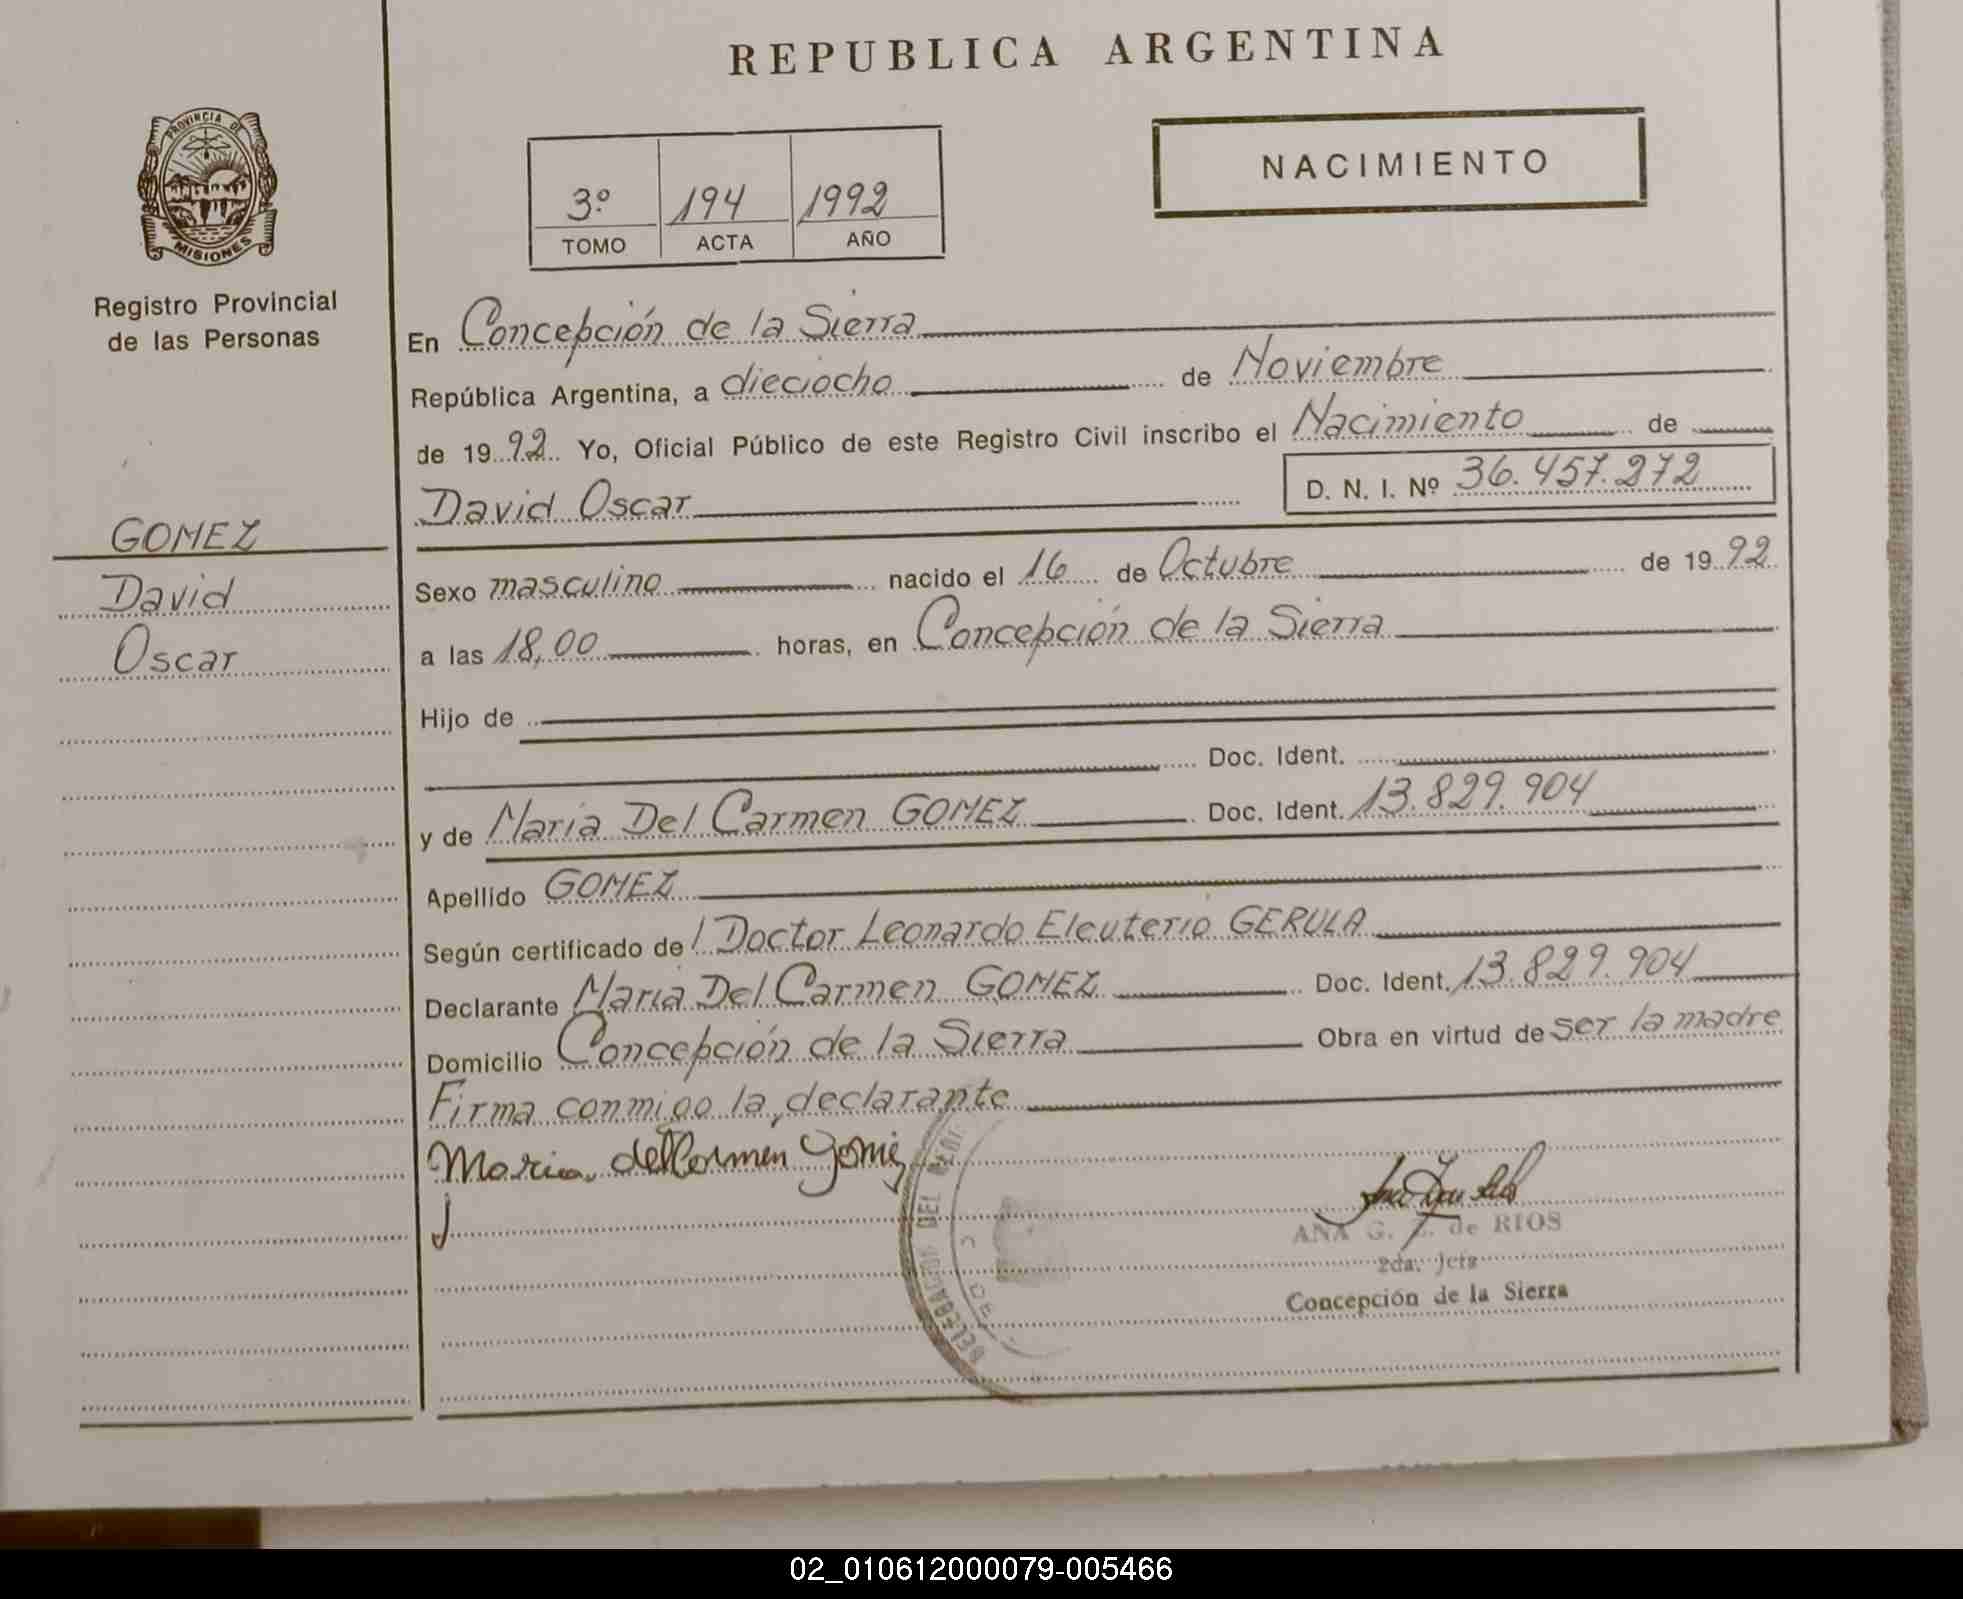 REPUBLICA ARGENTINA
PROVINCIA DE
MISIONES
Registro Provincial
de las Personas
3º 194 1992
TOMO ACTA AÑO
NACIMIENTO
GOMEZ
David
Oscar
En Concepción de la Sierra
República Argentina, a dieciocho de Noviembre
de 1992 Yo, Oficial Público de este Registro Civil inscribo el Nacimiento de
David Oscar D. N. I. Nº 36.457.272
Sexo masculino nacido el 16 de Octubre de 1992
a las 18,00 horas, en Concepción de la Sierra
Hijo de
Doc. Ident.
y de Maria Del Carmen GOMEZ Doc. Ident. 13.829.904
Apellido GOMEZ
Según certificado de l Doctor Leonardo Eleuterio GERULA
Declarante Maria Del Carmen GOMEZ Doc. Ident. 13.829.904
Domicilio Concepción de la Sierra Obra en virtud de ser la madre
Firma conmigo la declarante
Maria del Carmen Gomez
DELEGACION DEL
ANA G. Z. de RIOS
2da. Jefe
Concepción de la Sierra
02_010612000079-005466